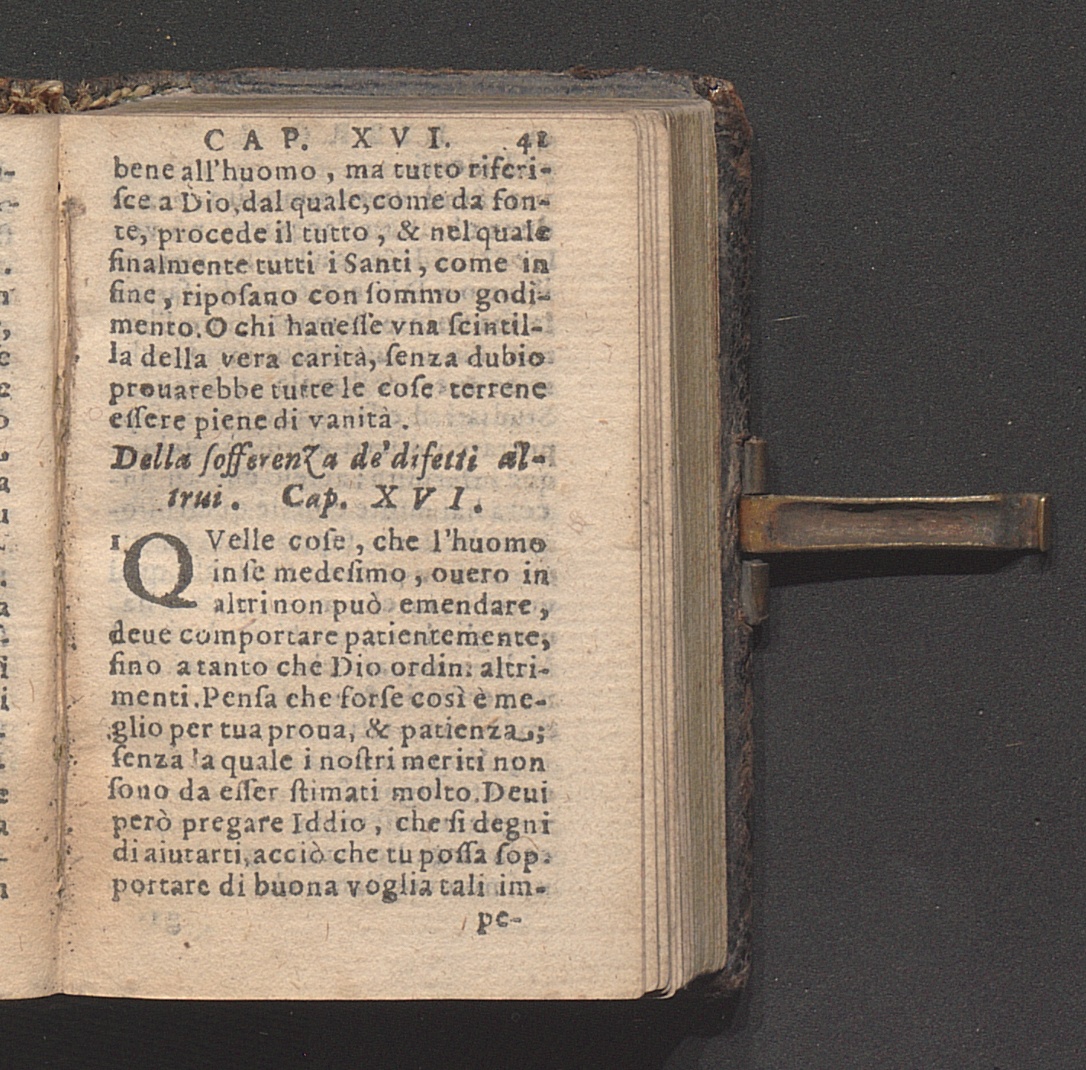 CAP. XVI. 41
bene all'huomo, ma tutto riferi-
ſce a Dio, dal quale, come da fon-
te, procede il tutto, & nel quale
finalmente tutti i Santi, come in
fine, ripoſano con ſommo godi-
mento. O chi haueſſe vna ſcintil-
la della vera carità, ſenza dubio
prouarebbe tutte le coſe terrene
eſſere piene di vanità.
Della ſofferenza de' difetti al-
trui. Cap. XVI.
1 QVelle coſe, che l'huomo
in ſe medeſimo, ouero in
altri non può emendare,
deue comportare patientemente,
fino a tanto che Dio ordini altri-
menti. Penſa che forſe così è me-
glio per tua proua, & patienza;
ſenza la quale i noſtri meriti non
ſono da eſſer ſtimati molto. Deui
però pregare Iddio, che ſi degni
di aiutarti, acciò che tu poſſa ſop-
portare di buona voglia tali im-
pe-